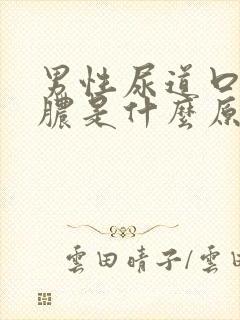 男性尿道口
膿是什麼原
雲田晴子/雲田